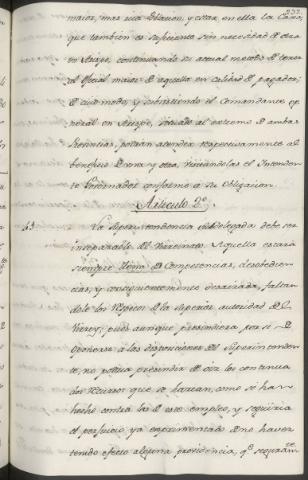 maior, mas rica Platacn, y estar en ella la Caxa,
que tambien es suficiente sin necesidad de otra
en Arispe, continuando su actual metodo de tener
al Oficial maior de aquella en calidad de pagador;
de cuio modo, y subsistiendo el Comandante ge
neral en Arispe, situado al extremo de ambas
Provincias, podrán atender respectivamente al
beneficio de una y otra, visitandolas el Intenden
te Governador conforme a su Obligacion.
Articulo 2º
43 La Superintendencia subdelegada debe ser
inseparable del Virreinato. Aquella estará
siempre llena de Competencias, desobedien
cias, y consiguientemente desairada, faltan
dole los respetos de la Superior autoridad del
Virrey; pues aunque prescindiera por sí de
oponerse a las disposiciones del Superintenden
te, no podria prescindir de oir los continua
dos recursos que se harian, como se han
hecho contra los de este empleo, y seguiria
el perjuicio ya experimentado de no haver
tenido efecto alguna providencia, qe seguram.te